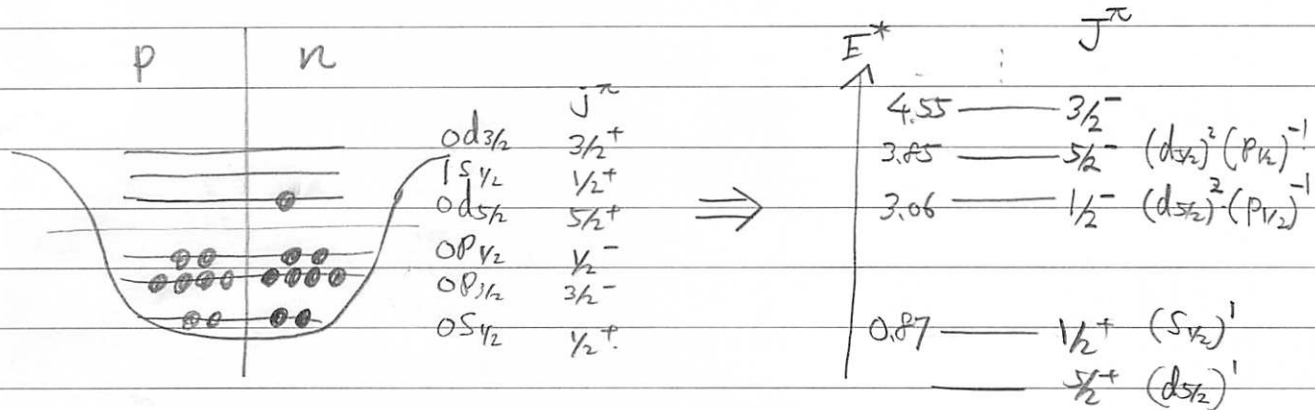 p n
jπ
0d3/2 3/2+
1s1/2 1/2+
0d5/2 5/2+
0p1/2 1/2-
0p3/2 3/2-
0s1/2 1/2+.
⇒
E* Jπ
4.55 3/2-
3.85 5/2- (d5/2)2 (p1/2)-1
3.06 1/2- (d5/2)2 (p1/2)-1
0.87 1/2+ (s1/2)1
5/2+ (d5/2)1